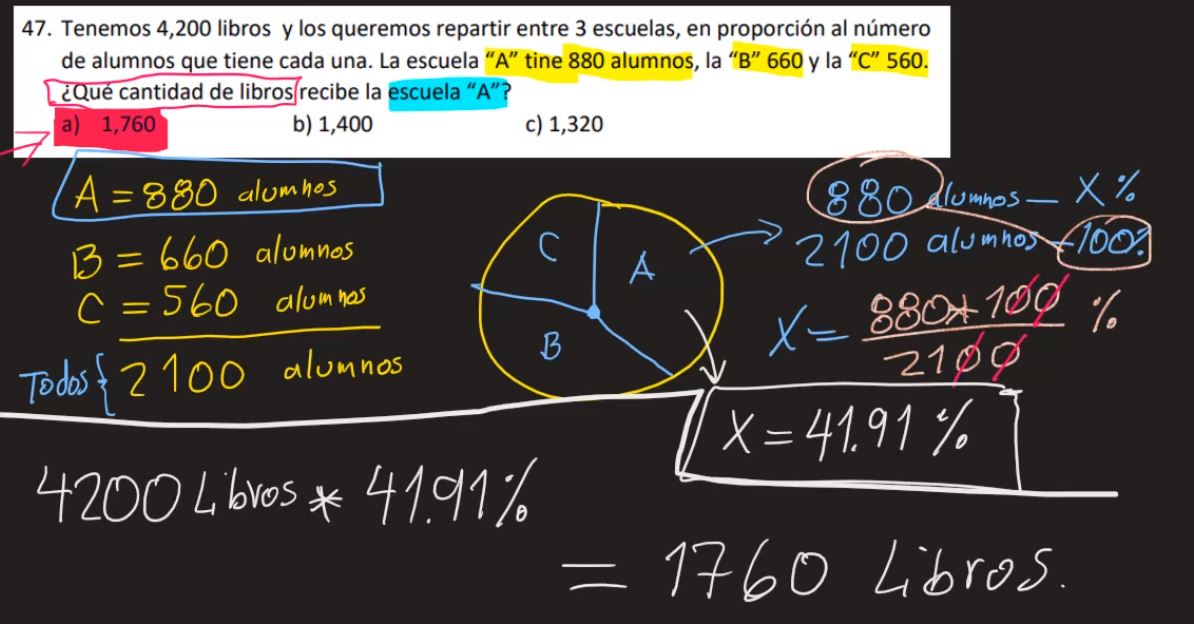 47. Tenemos 4,200 libros y los queremos repartir entre 3 escuelas, en proporción al número
de alumnos que tiene cada una. La escuela “A” tine 880 alumnos, la “B” 660 y la “C” 560.
¿Qué cantidad de libros recibe la escuela “A”?
a) 1,760 b) 1,400 c) 1,320
A = 880 alumnos
B = 660 alumnos
C = 560 alumnos
Todos { 2100 alumnos
C
A
B
880 alumnos — X %
2100 alumnos — 100%
X = 880 * 100 %
2100
X = 41.91 %
4200 Libros * 41.91 %
= 1760 Libros.